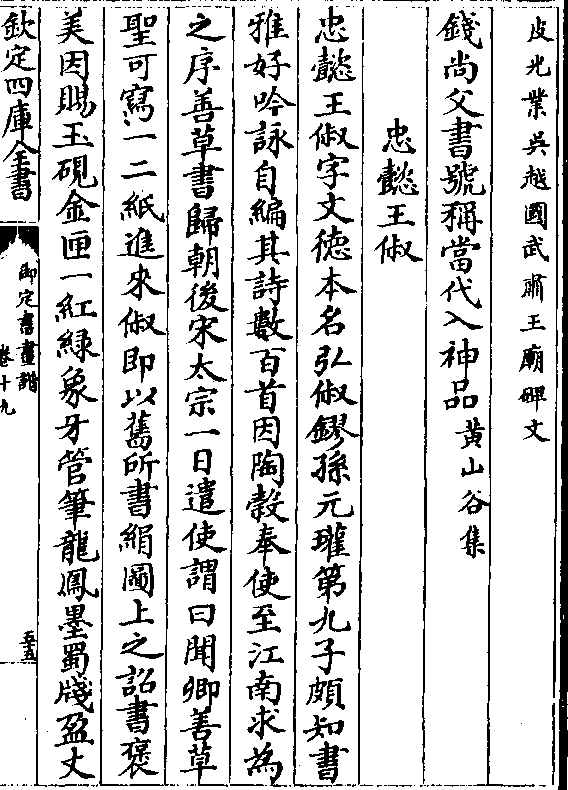 皮光業吳越國武肅王廟碑文
錢尚父書號稱當代入神品黄山谷集
忠懿王俶
忠懿王俶字文德本名弘俶鏐孫元瓘第九子頗知書
雅好吟詠自編其詩數百首因陶穀奉使至江南求為
之序善草書歸朝後宋太宗一日遣使謂曰聞卿善草
聖可寫一二紙進來俶即以舊所書絹圖上之詔書褒
美因賜玉硯金匣一紅緑象牙管筆龍鳳墨蜀牋盈丈
欽定四庫全書
御定書畫譜
卷十九